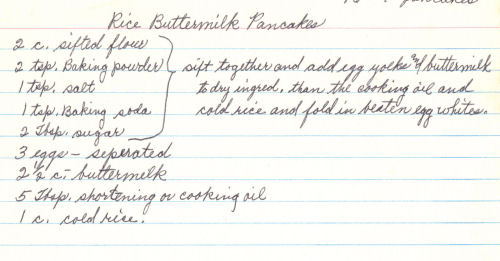 pancakes
Rice Buttermilk Pancakes
2 c. sifted flour
2 tsp. Baking powder
1 tsp. salt
1 tsp. Baking soda
2 Tbsp. sugar
sift together and add egg yolks and buttermilk
to dry ingred, than the cooking oil and
cold rice and fold in beaten egg whites.
3 eggs - seperated
2 1/2 c. - buttermelk
5 Tbsp. shortening or cooking oil
1 c. cold rice.